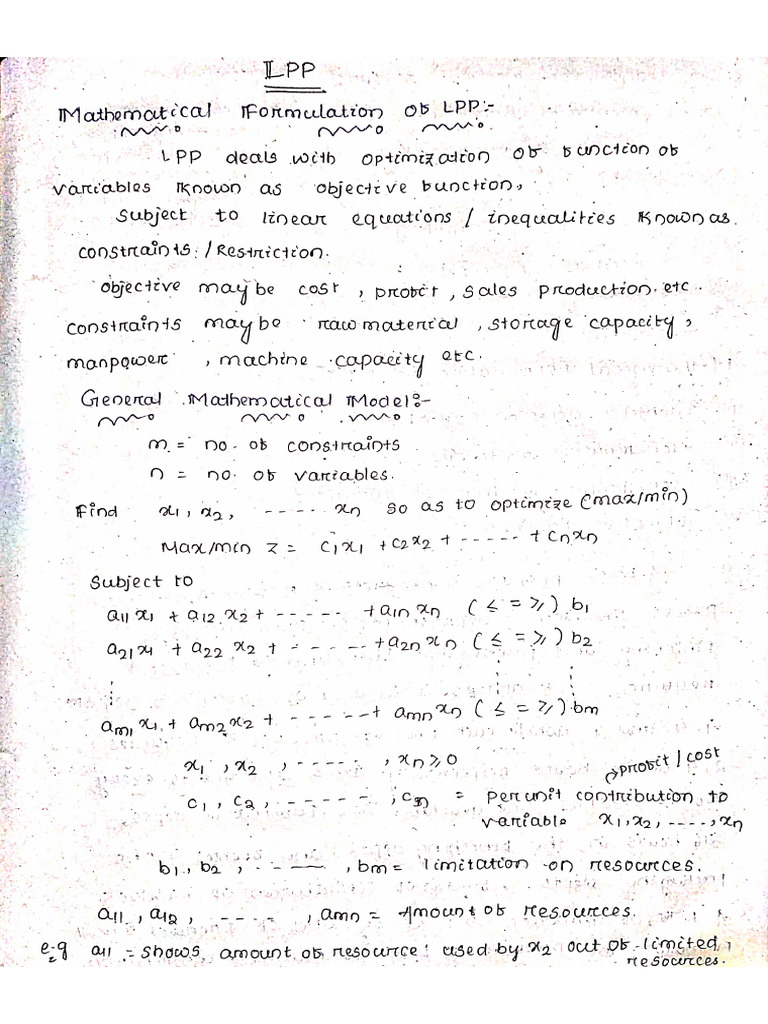 LPP
Mathematical Formulation of LPP:-
LPP deals with optimization of function of
variables known as objective function,
subject to linear equations / inequalities known as
constraints / Restriction.
objective may be cost, profit, sales production etc.
constraints may be raw material, storage capacity,
manpower, machine capacity etc.
General Mathematical Model:-
m = no. of constraints
n = no. of variables.
Find x1, x2, ----- xn so as to optimize (max/min)
Max/min z = c1x1 + c2x2 + ----- + cnxn
Subject to
a11x1 + a12x2 + ------ + a1nxn (≤ = ≥) b1
a21x1 + a22x2 + ------ + a2nxn (≤ = ≥) b2
am1x1 + am2x2 + ------ + amnxn (≤ = ≥) bm
x1, x2, -----, xn ≥ 0
profit / cost
c1, c2, ------, cn = per unit contribution to
variable x1, x2, ----, xn
b1, b2, -----, bm = limitation on resources.
a11, a12, ----, amn = Amount of resources.
e.g a11 = shows amount of resource used by x2 out of limited
resources.